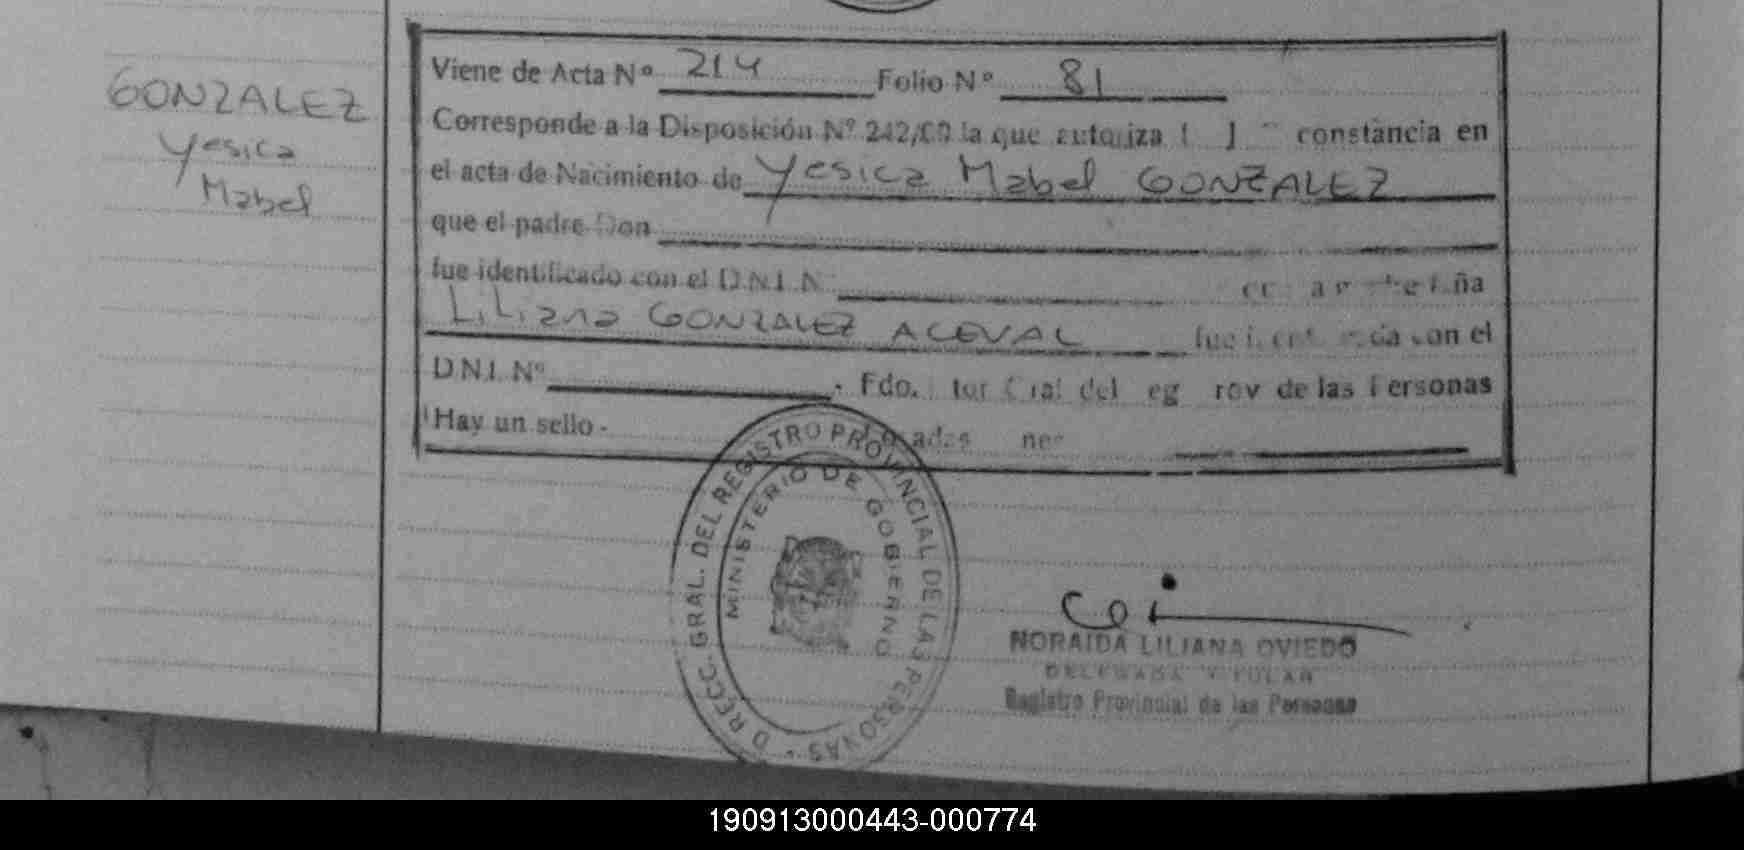 GONZALEZ
Yesica
Mabel
Viene de Acta Nº 214 Folio Nº 81
Corresponde a la Disposición Nº 242/00 la que autoriza constancia en
el acta de Nacimiento de Yesica Mabel GONZALEZ
que el padre Don
fue identificado con el D.N.I. N
Liliana GONZALEZ ACEVAL fue con el
D.N.I. Nº . Fdo. Gral del de las Personas
Hay un sello.
D RECC. GRAL. DEL REGISTRO PROVINCIAL DE LAS PERSONAS
MINISTERIO DE GOBIERNO
NORAIDA LILIANA OVIEDO
DELEGADA TITULAR
Registro Provincial de las Personas
190913000443-000774